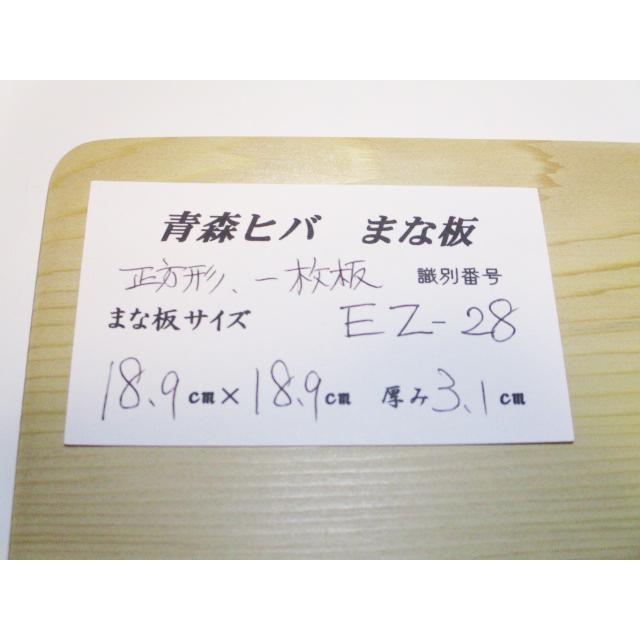 青森ヒバ まな板
正方形、一枚板 識別番号
まな板サイズ EZ-28
18.9cm×18.9cm 厚み3.1cm